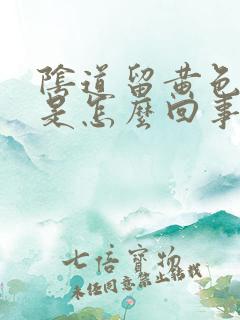 陰道留黃色
是怎麼回事
七倍寶物
未经同意禁止转载